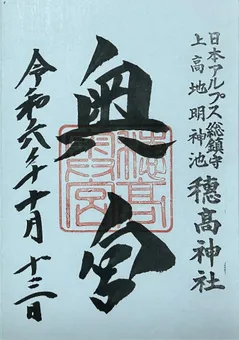 日本アルプス総鎮守
上高地明神池
穂高神社
奥宮
穂高
奥宮
令和六年十月十三日